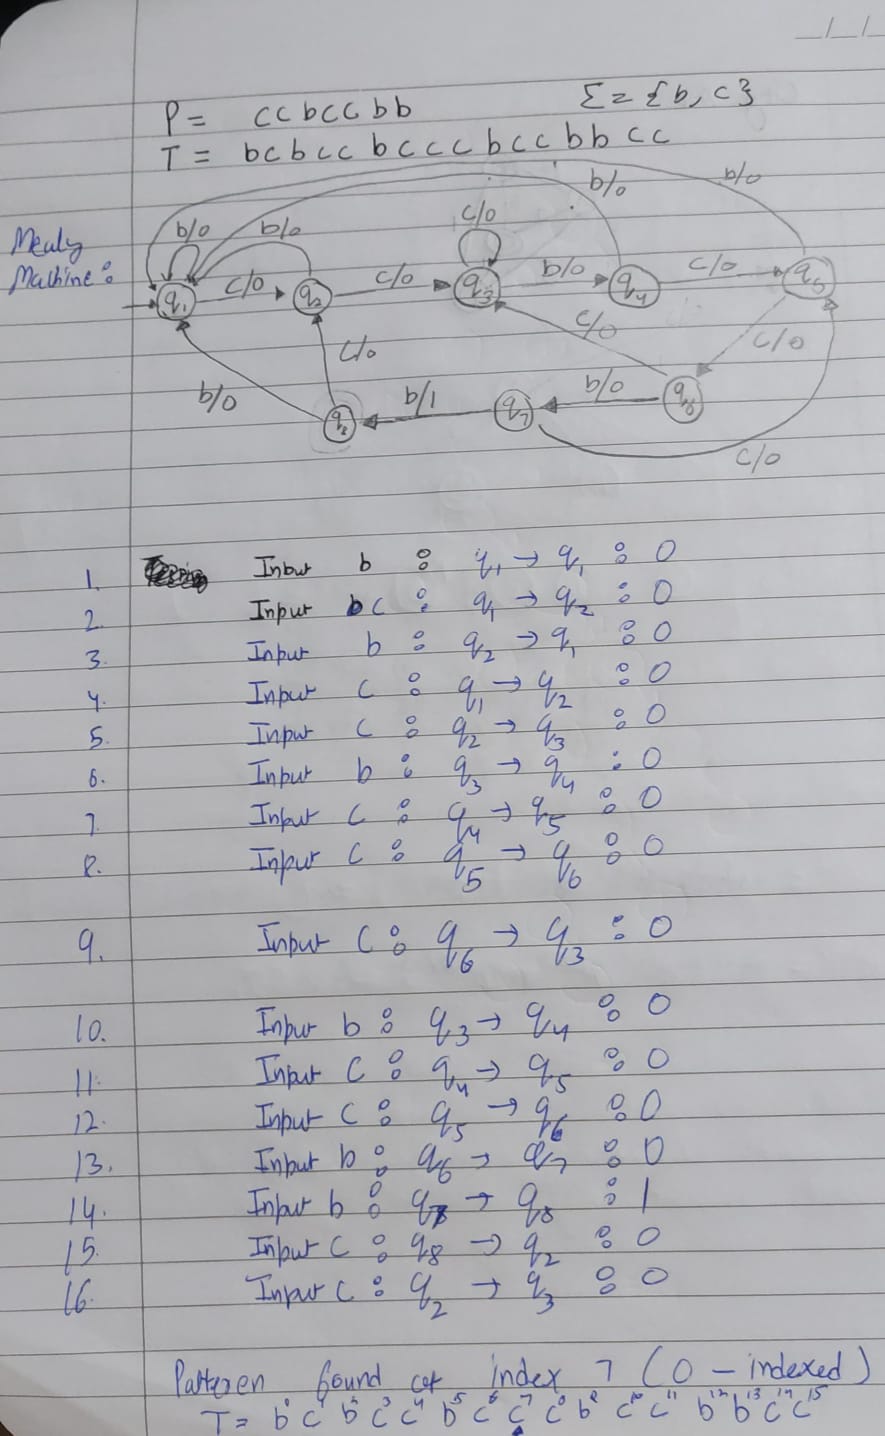 __/__/__
P = ccbccbb Σ = {b, c}
T = bcbccbcccbccbbcc
Mealy
Machine:
b/0 b/0
b/0 b/0 c/0
q1 c/0 q2 c/0 q3 b/0 q4 c/0 q5
c/0 c/0 c/0
b/0 q8 b/1 q7 b/0 q6
c/0
1. Input b : q1 → q1 : 0
2. Input c : q1 → q2 : 0
3. Input b : q2 → q1 : 0
4. Input c : q1 → q2 : 0
5. Input c : q2 → q3 : 0
6. Input b : q3 → q4 : 0
7. Input c : q4 → q5 : 0
8. Input c : q5 → q6 : 0
9. Input c : q6 → q3 : 0
10. Input b : q3 → q4 : 0
11. Input c : q4 → q5 : 0
12. Input c : q5 → q6 : 0
13. Input b : q6 → q7 : 0
14. Input b : q7 → q8 : 1
15. Input c : q8 → q2 : 0
16. Input c : q2 → q3 : 0
Patteren found at index 7 (0 - indexed)
T = b⁰ c¹ b² c³ c⁴ b⁵ c⁶ c⁷ c⁸ b⁹ c¹⁰ c¹¹ b¹² b¹³ c¹⁴ c¹⁵